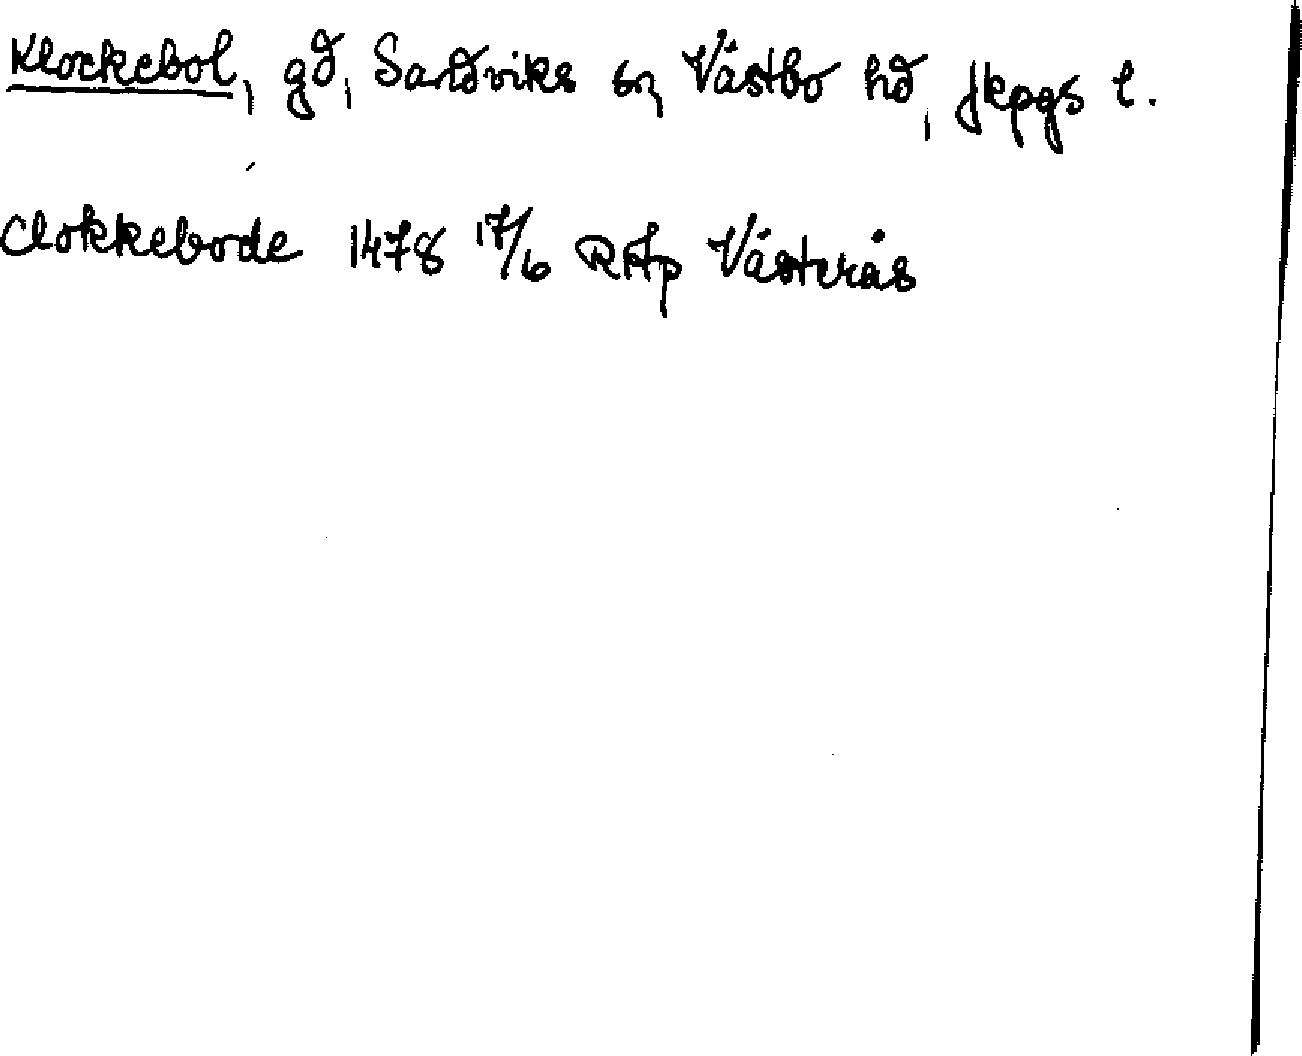 Klockebol, gd, Sandviks sn, Västbo hd, Jkpgs l.
Clokkebode 1478 17/6 RAp Västerås